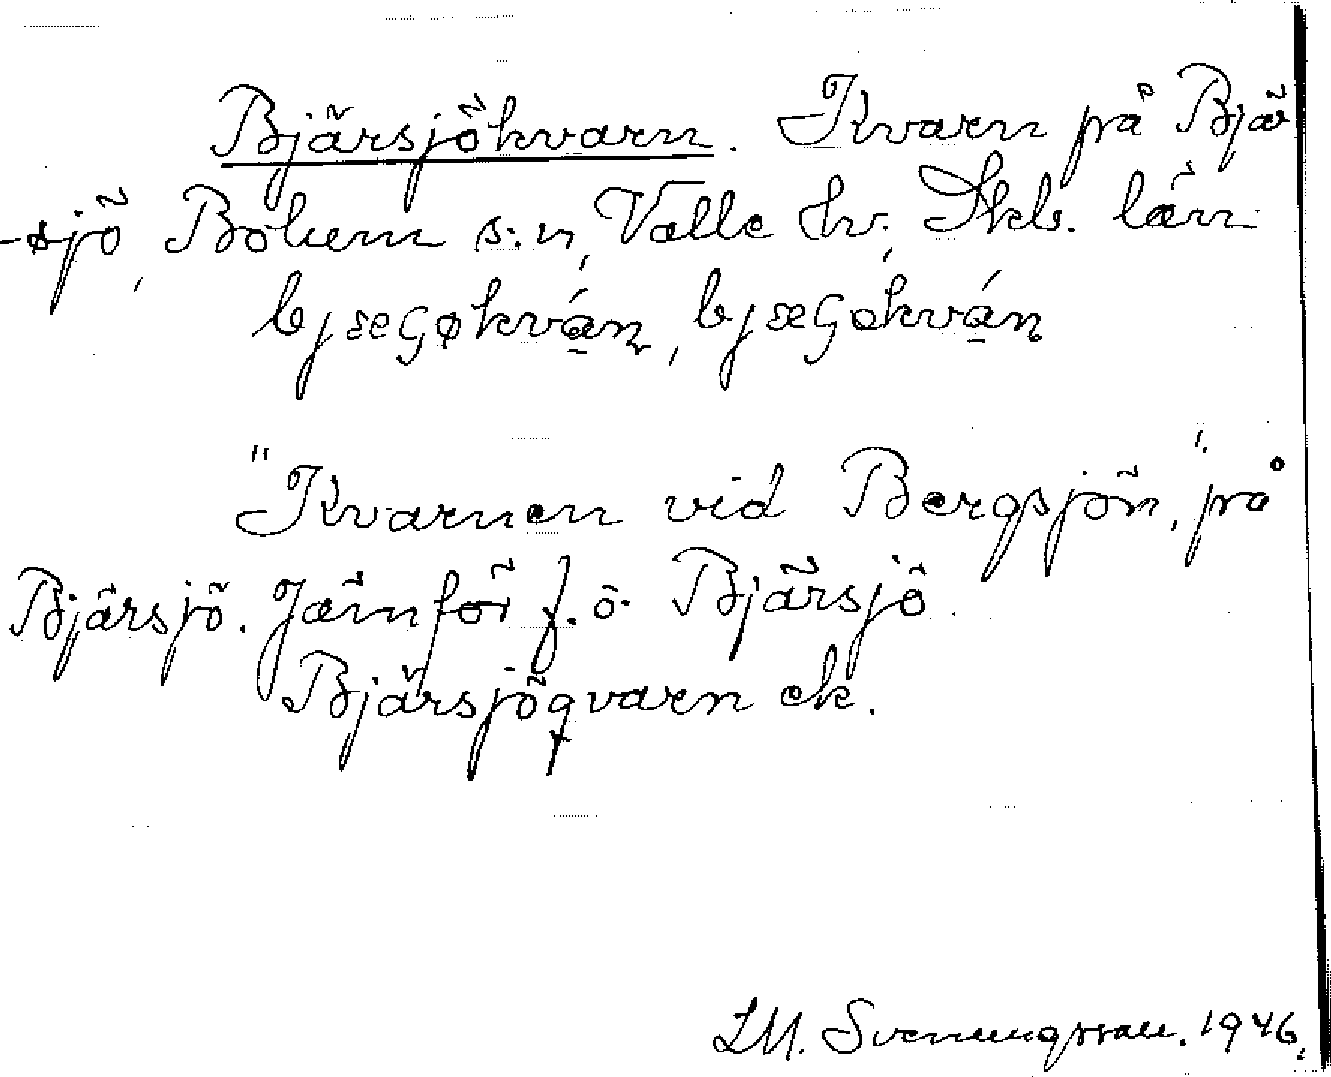 Bjärsjökvarn. Kvarn på Bjär
-sjö, Bolum s:n, Valle hr, Skb. län
bjæɢøkván, bjæɢəkván
"Kvarnen vid Bergsjön," på
Bjärsjö. Jämför f. ö. Bjärsjö.
Bjärsjöqvarn ek.
LM. Svenungsson. 1946.